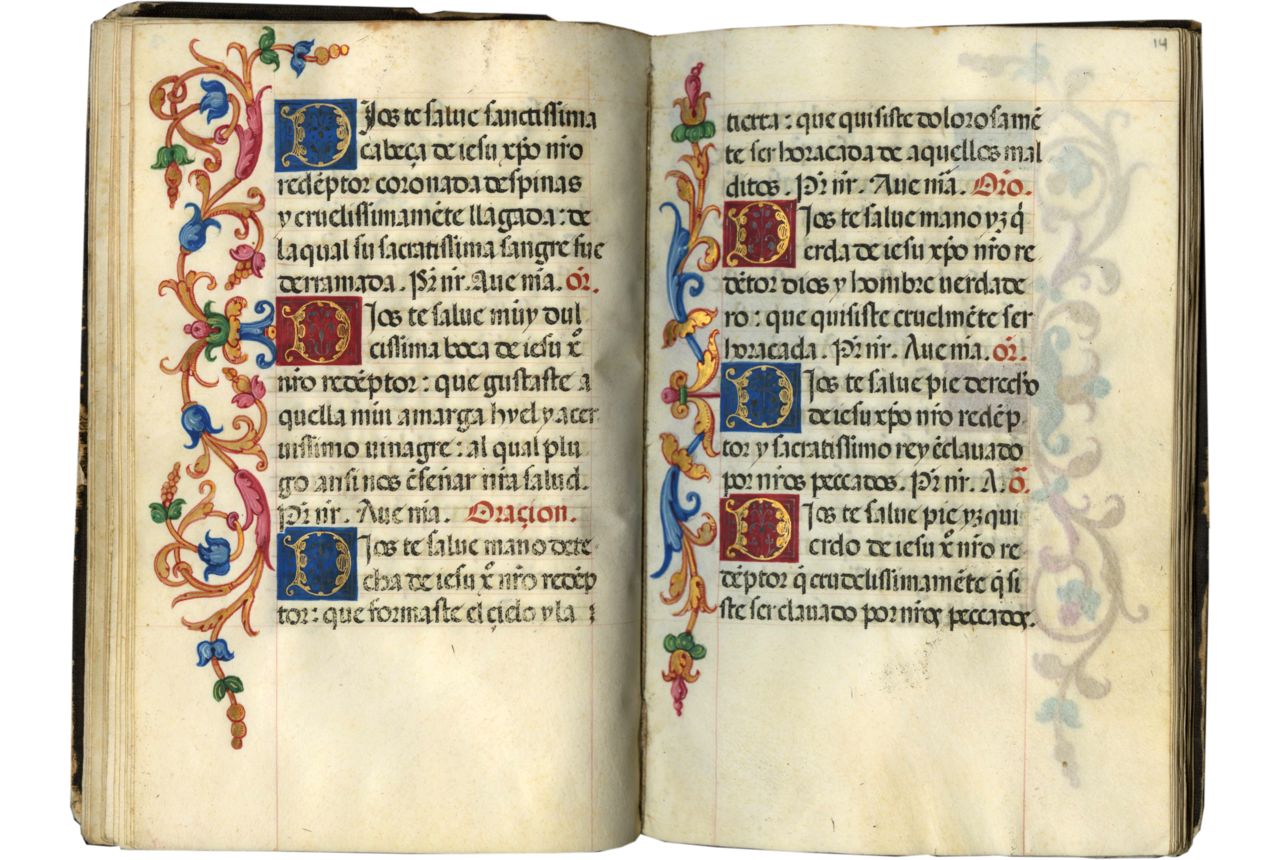 Dios te salue sanctissima
cabeça de iesu xp̄o nr̄o
redēptor coronada despinas
y cruelissimamēte llagada: de
la qual su sacratissima sangre fue
derramada. Pr̄ nr̄. Aue mīa. Or̄.
Dios te salue muy dul
cissima boca de iesu x̄
nr̄o redēptor: que gustaste a
quella muy amarga hyel y acer
uissimo uinagre: al qual plu
go ansi nos ēseñar nr̄a salud.
Pr̄ nr̄. Aue mīa. Oraçion.
Dios te salue mano dere
cha de iesu x̄ nr̄o redēp
tor: que formaste el çielo y la
14
tierra: que quisiste dolorosamē
te ser horacada de aquellos mal
ditos. Pr̄ nr̄. Aue mīa. Or̄o.
Dios te salue mano yzq̄
erda de iesu xp̄o nr̄o re
dētor dios y hombre uerdade
ro: que quisiste cruelmēte ser
horacada. Pr̄ nr̄. Aue mīa. or̄.
Dios te salue pie derecho
de iesu xp̄o nr̄o redēp
tor y sacratissimo rey ēclauado
por nr̄os peccados. Pr̄ nr̄. A. ō.
Dios te salue pie yzqui
erdo de iesu x̄ nr̄o re
dēptor q̄ crudelissimamēte q̄si
ste ser clauado por nr̄os peccados.